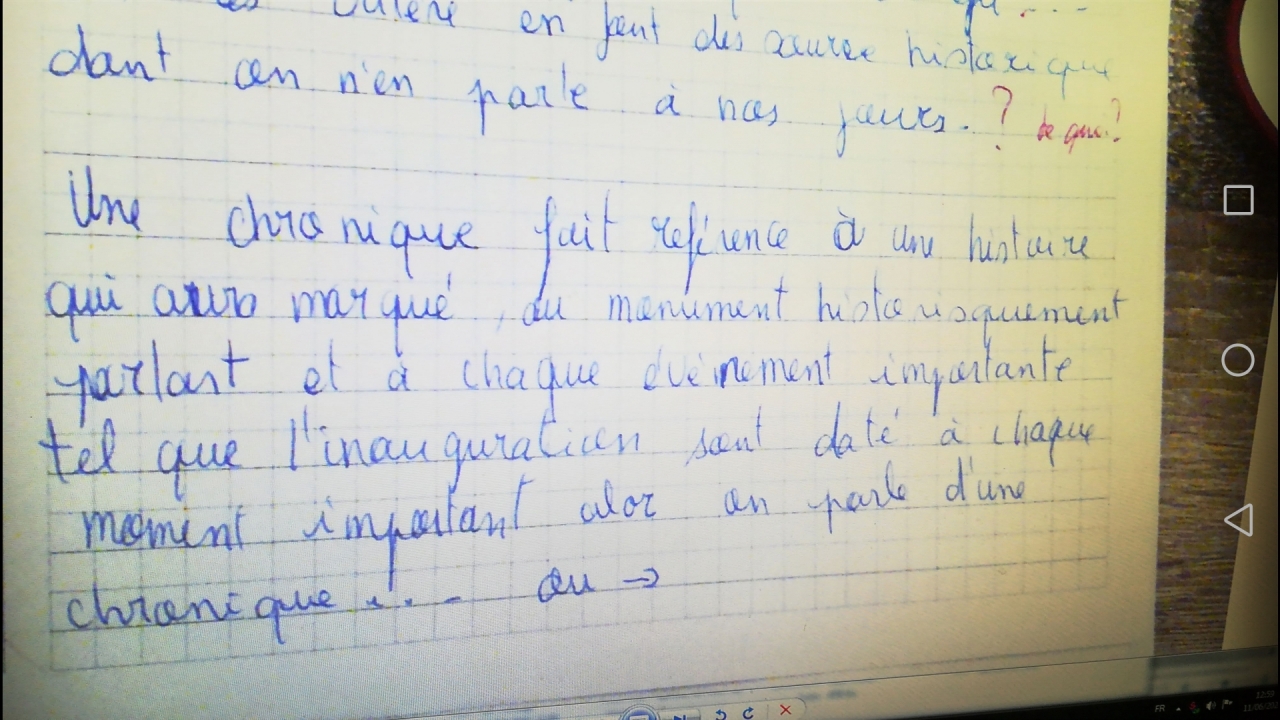 en font des source historique
dont on n'en parle à nos jours. ? de quoi?
Une chronique fait reférence à une histoire
qui aura marqué, ou monument historisquement
parlant et à chaque évènement importante
tel que l'inauguration sont daté à chaque
moment important alor on parle d'une
chronique .... ou →
FR